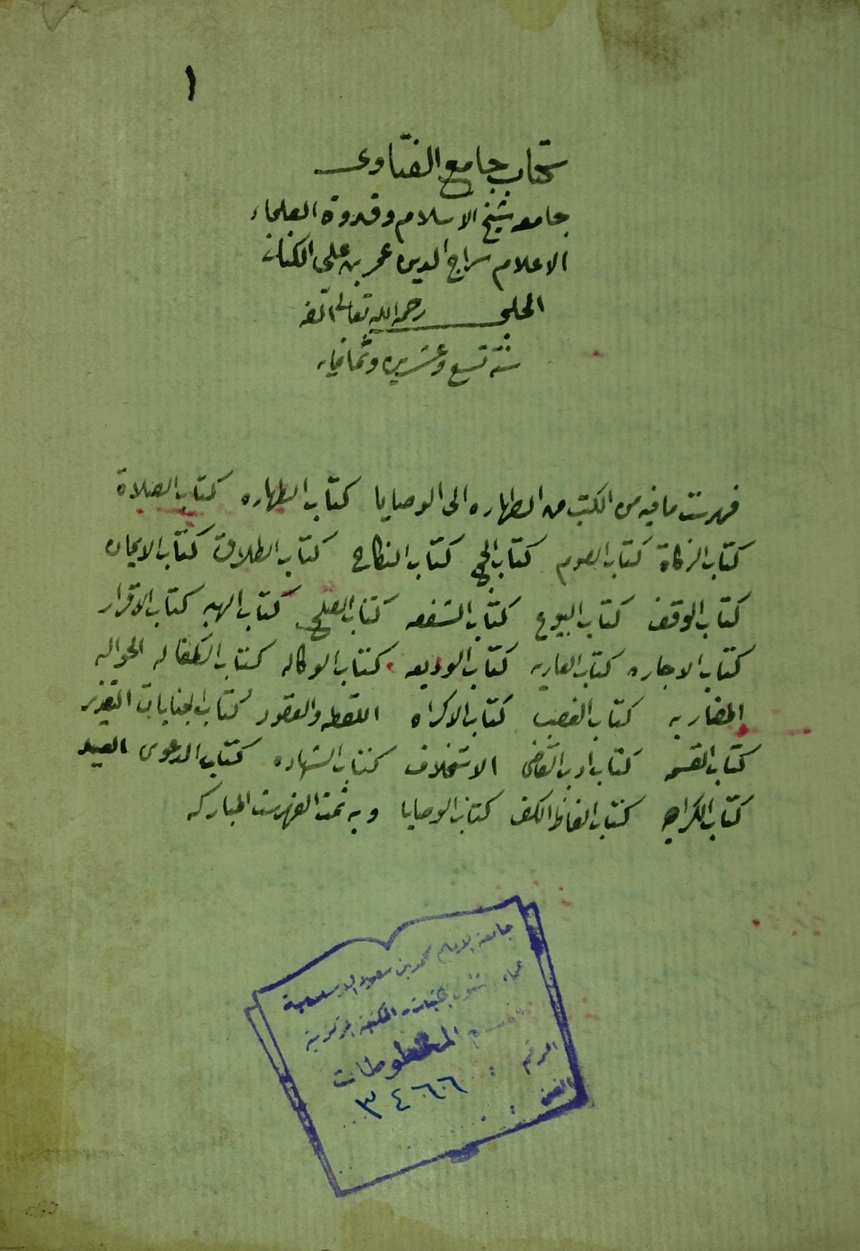 ١
كتاب جامع الفتاوى
جامعه شيخ الاسلام وقدوة العلماء
الاعلام سراج الدين عمر بن على الكنانى
الحلبى رحمه الله تعالى الفه
سنة تسع وعشرين وثمانمايه
فهرست ما فيه من الكتب من الطهاره الى الوصايا كتاب الطهاره كتاب الصلاة
كتاب الزكاة كتاب الصوم كتاب الحج كتاب النكاح كتاب الطلاق كتاب الايمان
كتاب الوقف كتاب البيوع كتاب الشفعه كتاب الصلح كتاب الهبه كتاب الاقرار
كتاب الاجاره كتاب العاريه كتاب الوديعه كتاب الوكاله كتاب الكفاله الحواله
المضاربه كتاب الغصب كتاب الاكراه اللقطه والمفقود كتاب الجنايات التعزير
كتاب القسمه كتاب ادب القاضى الاستخلاف كتاب الشهاده كتاب الدعوى الصيد
كتاب الكراهيه كتاب الفاظ الكفر كتاب الوصايا وبه تمت الفهرست المباركه
جامعة الامام محمد بن سعود الاسلامية
عمادة شئون المكتبات المكتبة المركزية
قسم المخطوطات
الرقم : ٣٤٦٦
الفن :